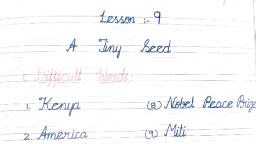 Lesson :- 9
A Tiny Seed
I. Difficult Words:-
1. Kenya (8) Nobel Peace Prize
2. America (9) Miti